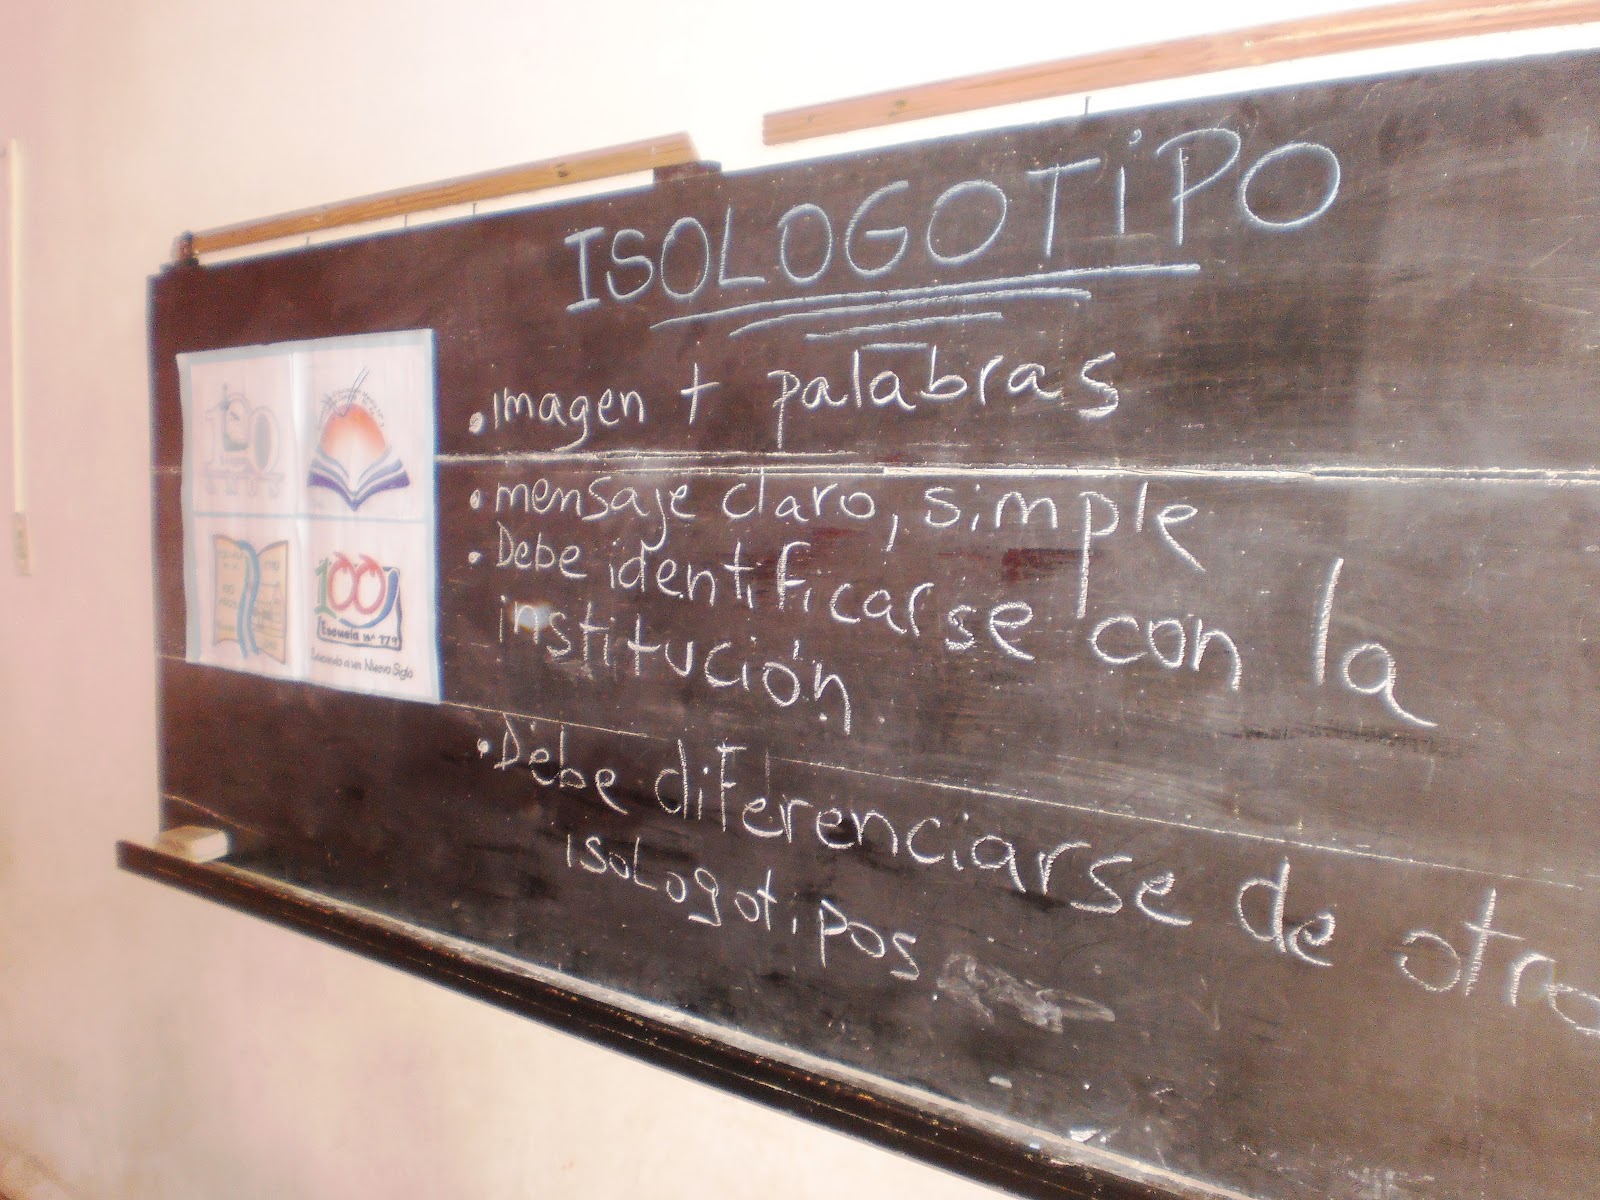 ISOLOGOTiPO
• Imagen + palabras
• mensaje claro, simple
• Debe identificarse con la
institución.
• Debe diferenciarse de otro
isologotipos
100
100
Escuela nº 179
a un Nuevo Siglo